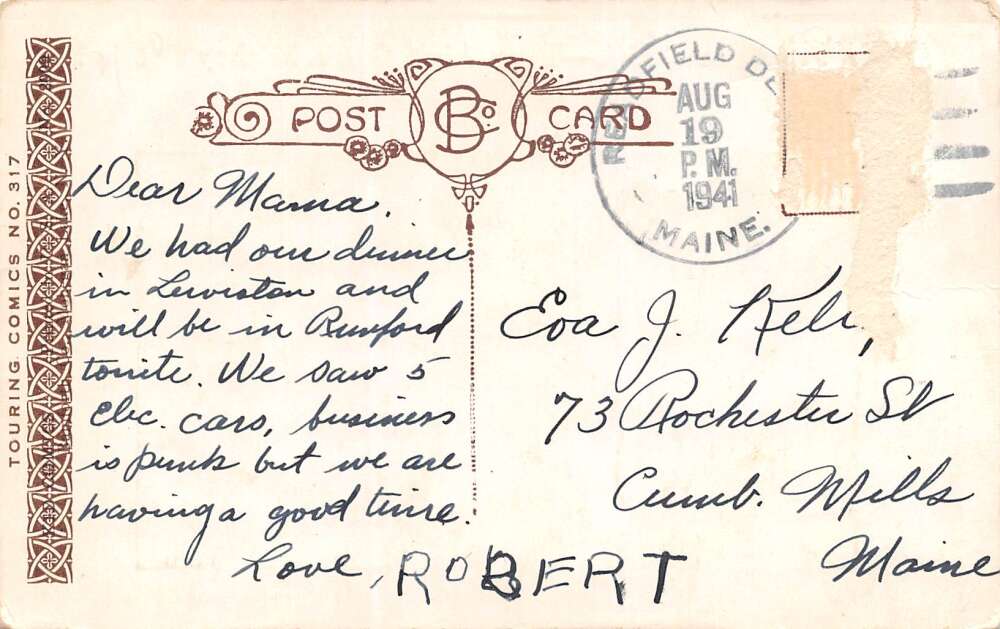 TOURING COMICS NO. 317
POST BCo. CARD
READFIELD DE
AUG
19
P.M.
1941
MAINE.
Dear Mama.
We had our dinner
in Lewiston and
will be in Rumford
tonite. We saw 5
elec. cars, business
is punk but we are
having a good time.
Love, ROBERT
Eva J.
73 Rochester St
Cumb. Mills
Maine